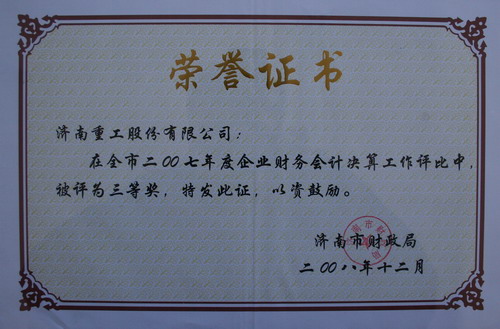 荣誉证书
济南重工股份有限公司：
在全市二00七年度企业财务会计决算工作评比中，
被评为三等奖，特发此证，以资鼓励。
济南市财政局
二00八年十二月